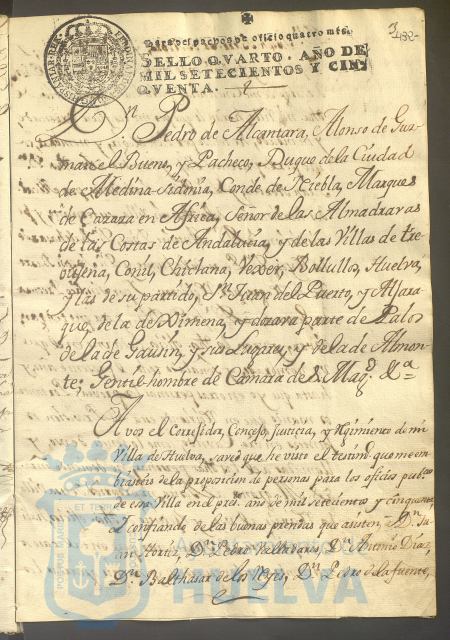 3
432-
Para despachos de oficio quatro mrs.
SELLO QVARTO. AÑO DE
MIL SETECIENTOS Y CIN-
QVENTA.
Dn. Pedro de Alcantara, Alonso de Guz-
man el Bueno, y Pacheco, Duque de la Ciudad
de Medina-Sidonia, Conde, de Niebla, Marques
de Cazaza en Africa, Señor de las Almadravas
de las Costas de Andalucia, y de las Villas de Tre-
bujena, Conil, Chiclana, Vexer, Bollullos, Huelva,
y las de su partido, Sn. Juan del Puerto, y Aljara-
que, de la de Ximena, y dozava parte de Palos
de la de Gausin, y sus Lugares, y de la de Almon-
te; Gentil-hombre de Camara de S. Magd. &a
A vos el Corregidor, Concejo, Justicia, y Rejimiento de mi
Villa de Huelva, saved que he visto el testimo. que me em-
biasteis de la proposicion de personas para los oficios pubcos.
de esa Villa en el preste. año de mil setecientos y cinquenta
y confiando de las buenas prendas que asisten, a Dn. Ju-
an Hortiz, Dn. Pedro Valladares, Dn. Antonio Diaz,
Dn. Balthasar de los Reyes, Dn. Pedro de la fuente,
HUELVA